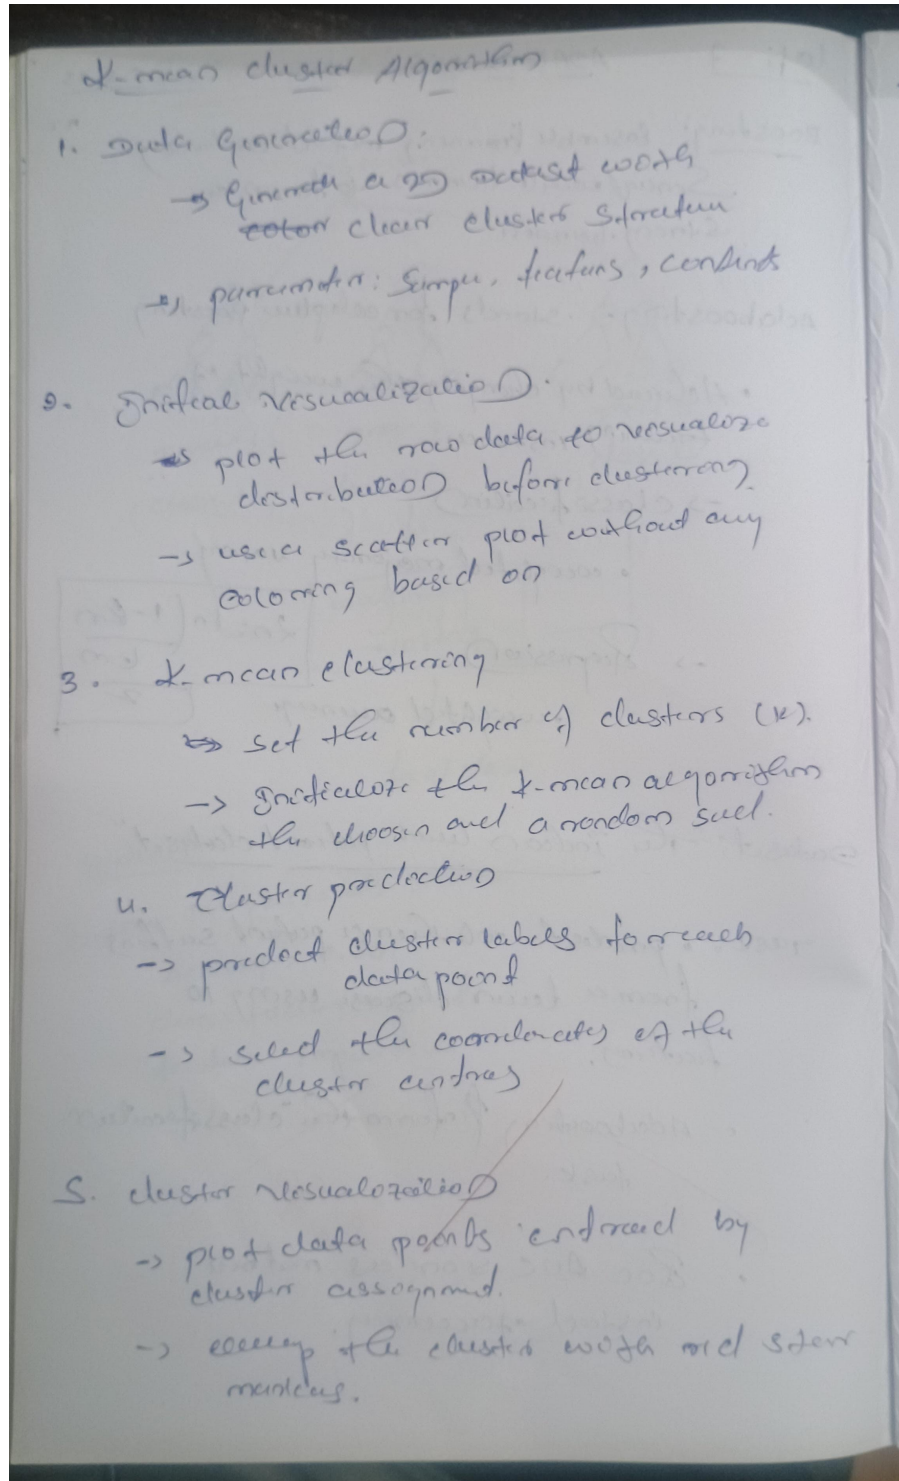 K-mean cluster Algorithm
1. Data Generation:
→ Generate a 2D Dataset with
clear cluster structure
→ parameter: Sample, features, 
2. Initial visualization:
→ plot the raw data to visualize
distribution before clustering
→ use a scatter plot without any
coloring based on
3. K-mean clustering
→ set the number of clusters (k).
→ Initialize the k-mean algorithm
the choosen and a random seed.
4. Cluster prediction
→ predict cluster labels for each
data point
→ select the coordinates of the
cluster centres
5. cluster visualization
→ plot data points by
cluster assignment.
→ the cluster with red star
markers.